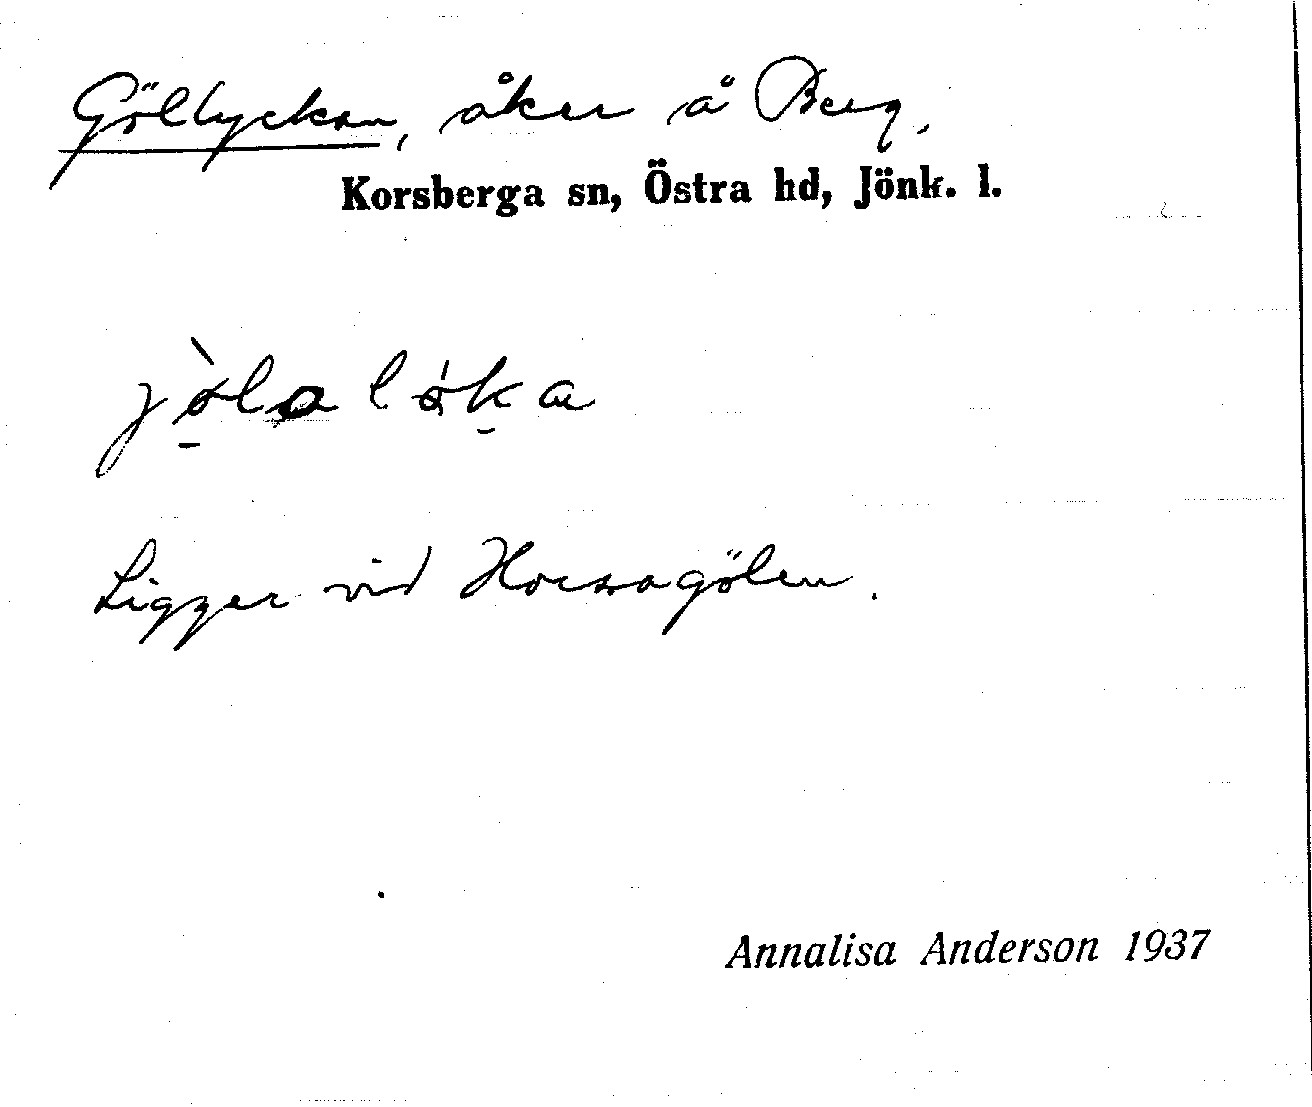 Göllyckan, åker å Berg.
Korsberga sn, Östra hd, Jönk. l.
Ligger vid Horsagölen.
Annalisa Anderson 1937